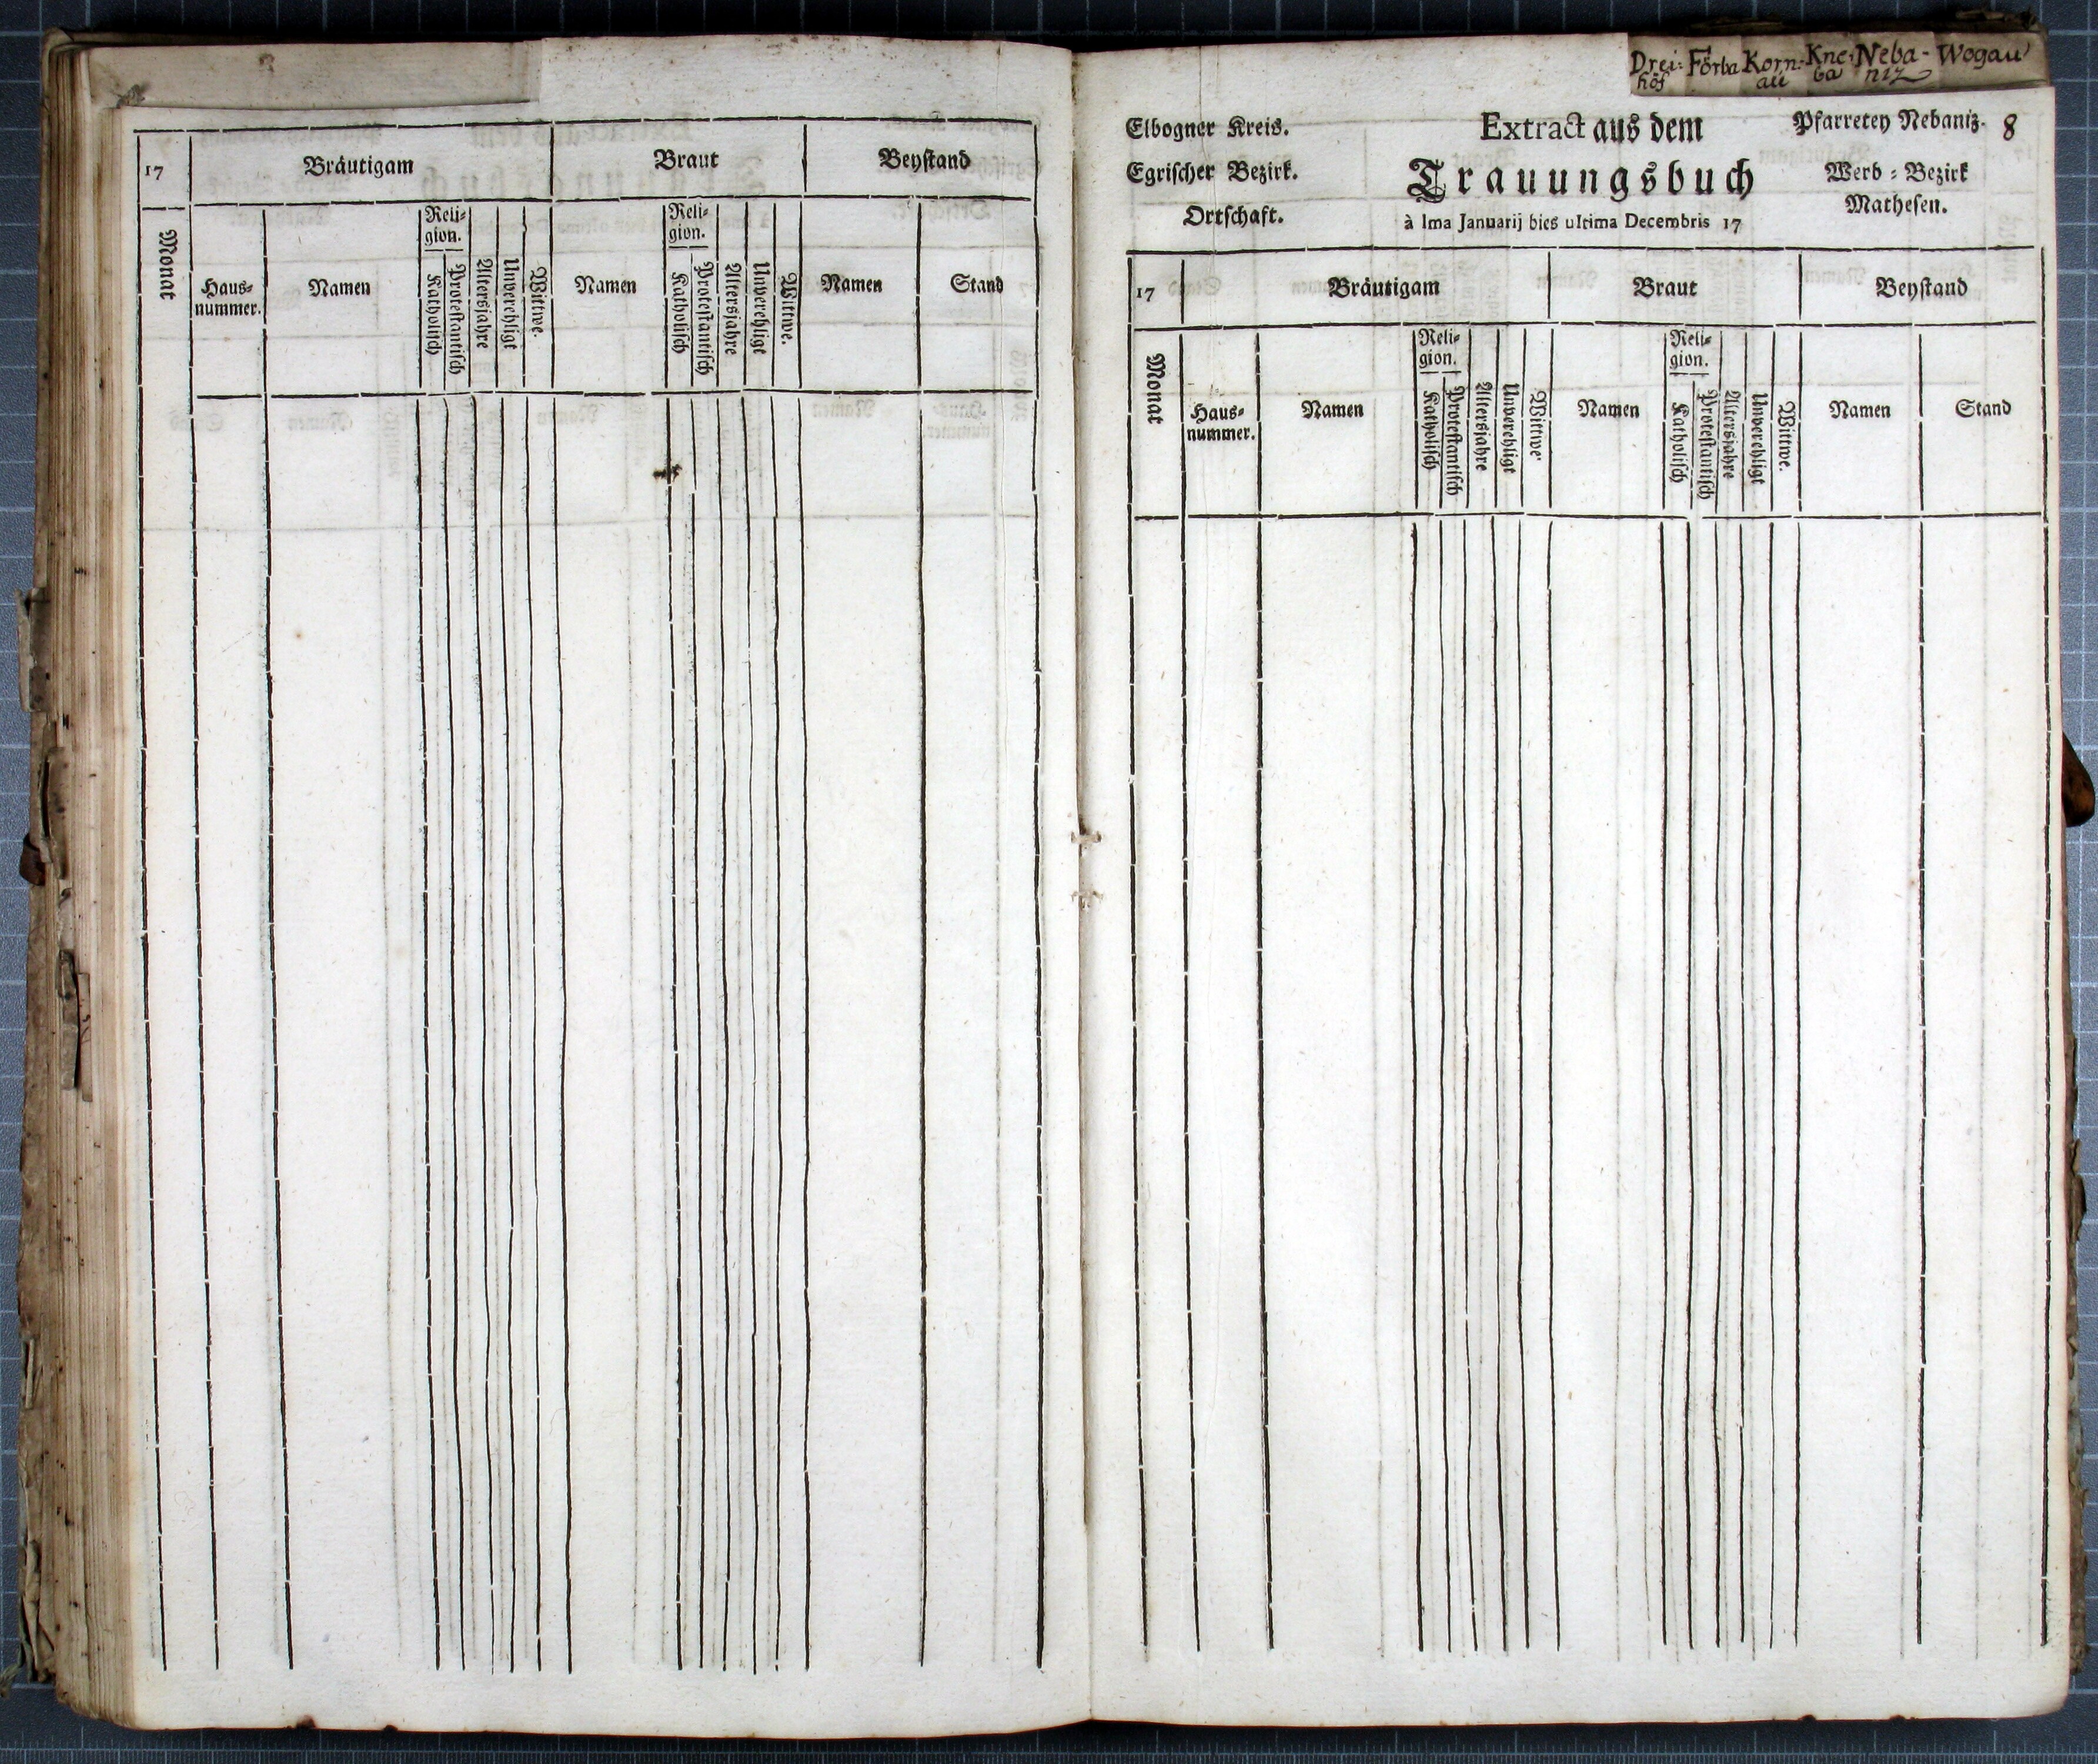 17 Bräutigam Braut Beystand
Monat
Haus-
nummer.
Namen
Reli-
gion.
Katholisch
Protestantisch
Altersjahre
Unverehligt
Wittwe.
Namen
Reli-
gion.
Katholisch
Protestantisch
Altersjahre
Unverehligt
Wittwe.
Namen
Stand
Drei- Förba Korn- Kne- Neba- Wogau
höf au ba niz
Elbogner Kreis. Extract aus dem Pfarretey Nebaniz. 8
Egrischer Bezirk. Trauungsbuch Werb-Bezirk
Ortschaft. à Ima Januarij bies ultima Decembris 17 Mathesen.
17 Bräutigam Braut Beystand
Monat
Haus-
nummer.
Namen
Reli-
gion.
Katholisch
Protestantisch
Altersjahre
Unverehligt
Wittwe
Namen
Reli-
gion.
Katholisch
Protestantisch
Altersjahre
Unverehligt
Wittwe.
Namen
Stand